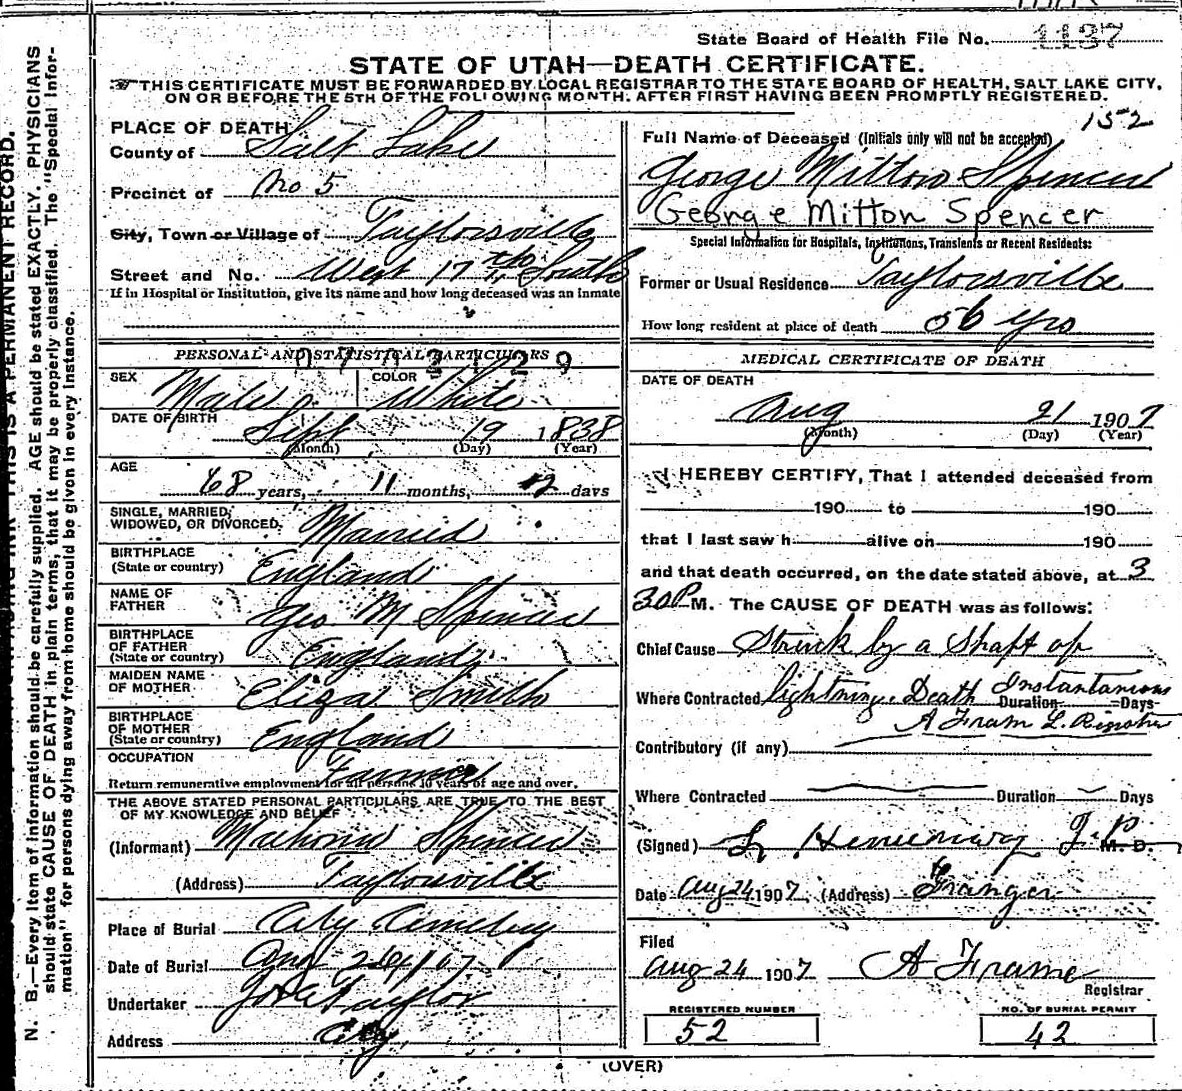 State Board of Health File No. 1137
STATE OF UTAH—DEATH CERTIFICATE.
THIS CERTIFICATE MUST BE FORWARDED BY LOCAL REGISTRAR TO THE STATE BOARD OF HEALTH, SALT LAKE CITY,
ON OR BEFORE THE 5TH OF THE FOLLOWING MONTH. AFTER FIRST HAVING BEEN PROMPTLY REGISTERED.
PLACE OF DEATH
County of Salt Lake
Precinct of No 5
City, Town or Village of Taylorsville
Street and No. West 17th South
If in Hospital or Institution, give its name and how long deceased was an inmate
PERSONAL AND STATISTICAL PARTICULARS
SEX Male COLOR White
DATE OF BIRTH Sept 19 1838
(Month) (Day) (Year)
AGE
68 years, 11 months, 2 days
SINGLE, MARRIED,
WIDOWED, OR DIVORCED. Married
BIRTHPLACE
(State or country) England
NAME OF
FATHER Geo M Spencer
BIRTHPLACE
OF FATHER
(State or country) England
MAIDEN NAME
OF MOTHER Eliza Smith
BIRTHPLACE
OF MOTHER
(State or country) England
OCCUPATION Farmer
Return remunerative employment for all persons 10 years of age and over.
THE ABOVE STATED PERSONAL PARTICULARS ARE TRUE TO THE BEST
OF MY KNOWLEDGE AND BELIEF
(Informant) Spencer
(Address) Taylorsville
Place of Burial City Cemetery
Date of Burial Aug 24/07
Undertaker Taylor
Address City
152
Full Name of Deceased (Initials only will not be accepted)
George Mitton Spencer
George Mitton Spencer
Special Information for Hospitals, Institutions, Transients or Recent Residents:
Former or Usual Residence Taylorsville
How long resident at place of death 56 yrs
MEDICAL CERTIFICATE OF DEATH
DATE OF DEATH
Aug 21 1907
(Month) (Day) (Year)
I HEREBY CERTIFY, That I attended deceased from
190 to 190
that I last saw h alive on 190
and that death occurred, on the date stated above, at 3
30 P M. The CAUSE OF DEATH was as follows:
Chief Cause Struck by a Shaft of
Where Contracted lightning. Death Instantanious Duration Days
A Fram L. Registrar
Contributory (if any)
Where Contracted Duration Days
(Signed) L Hemenway J.P. M. D.
Date Aug 24 1907 (Address) Granger
Filed
Aug 24 1907 A Frame
Registrar
REGISTERED NUMBER NO. OF BURIAL PERMIT
52 42
(OVER)
N. B.—Every item of information should be carefully supplied. AGE should be stated EXACTLY. PHYSICIANS
should state CAUSE OF DEATH in plain terms, that it may be properly classified. The "Special Infor-
mation" for persons dying away from home should be given in every instance.
THIS IS A PERMANENT RECORD.